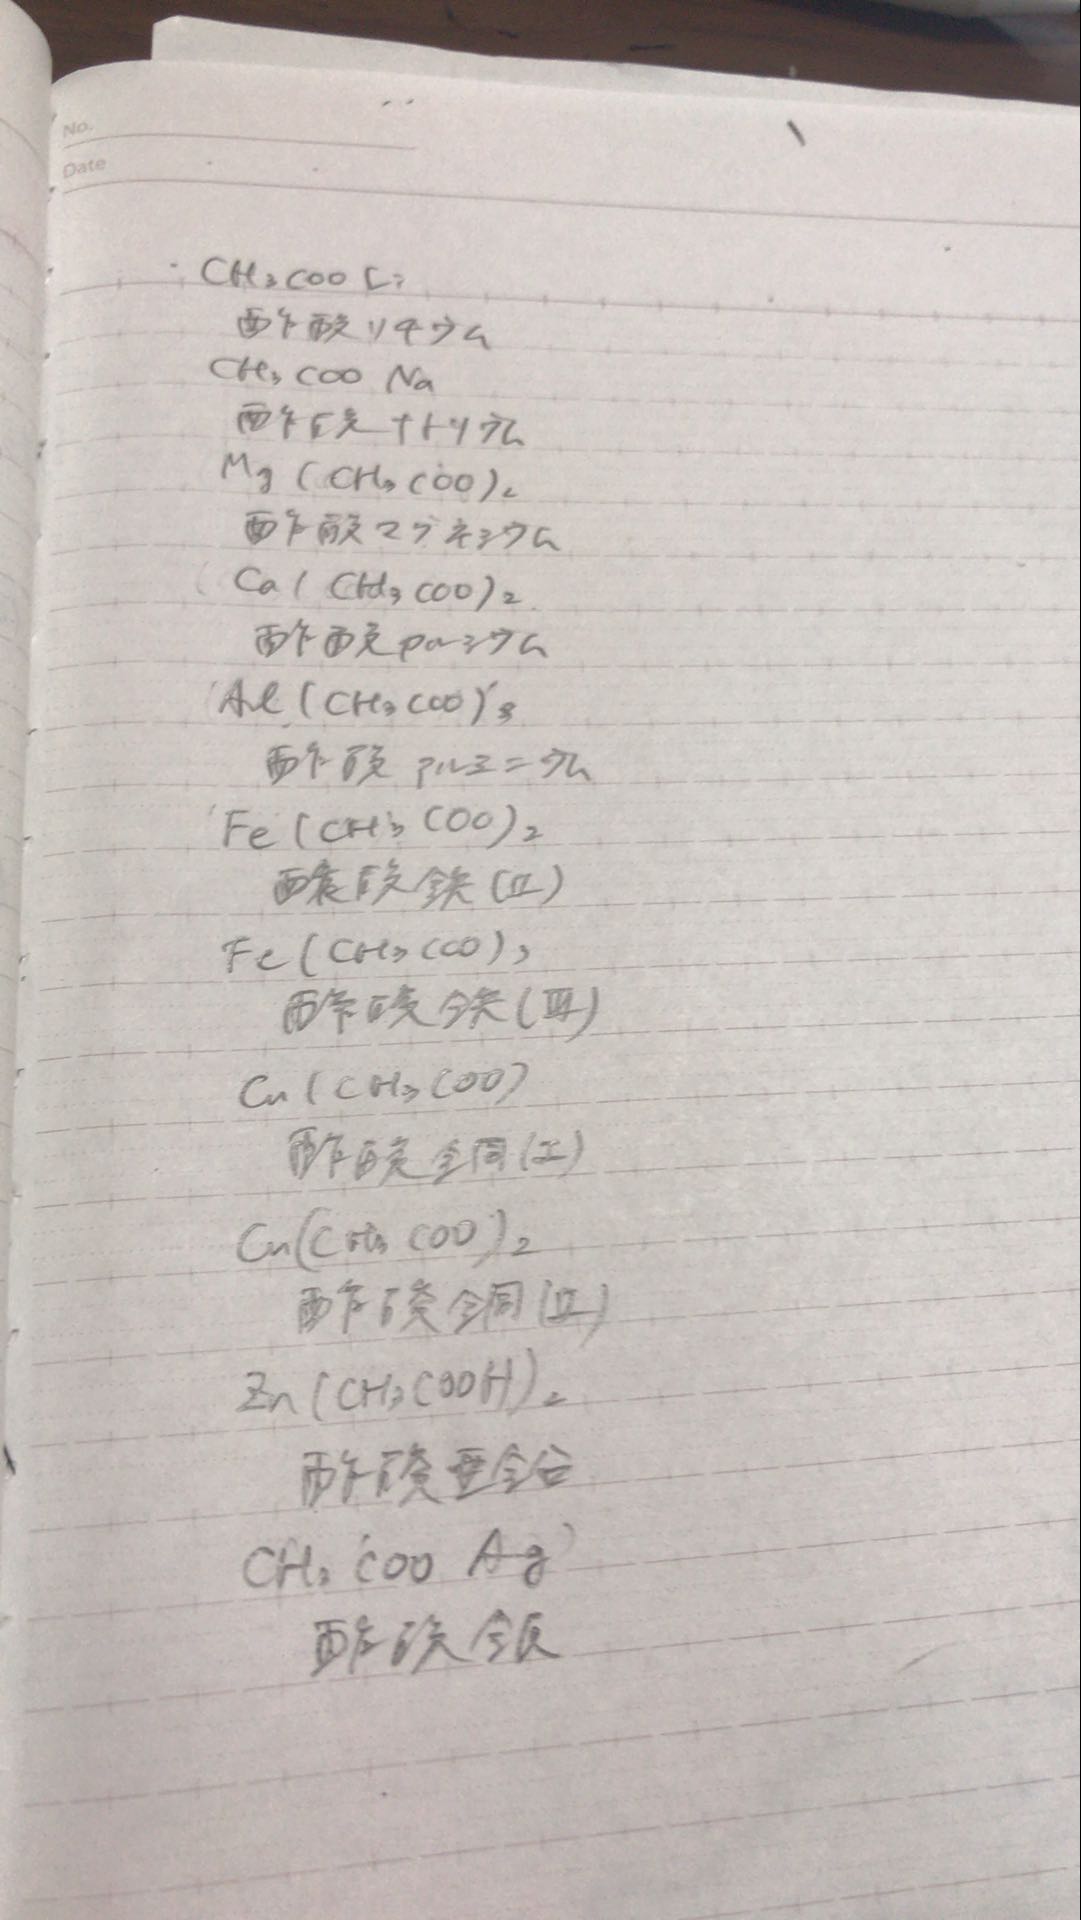 No.
Date
CH₃COOLi
酢酸リチウム
CH₃COONa
酢酸ナトリウム
Mg(CH₃COO)₂
酢酸マグネシウム
Ca(CH₃COO)₂
酢酸カルシウム
Al(CH₃COO)₃
酢酸アルミニウム
Fe(CH₃COO)₂
酢酸鉄(II)
Fe(CH₃COO)₃
酢酸鉄(III)
Cu(CH₃COO)
酢酸銅(I)
Cu(CH₃COO)₂
酢酸銅(II)
Zn(CH₃COOH)₂
酢酸亜鉛
CH₃COOAg
酢酸銀